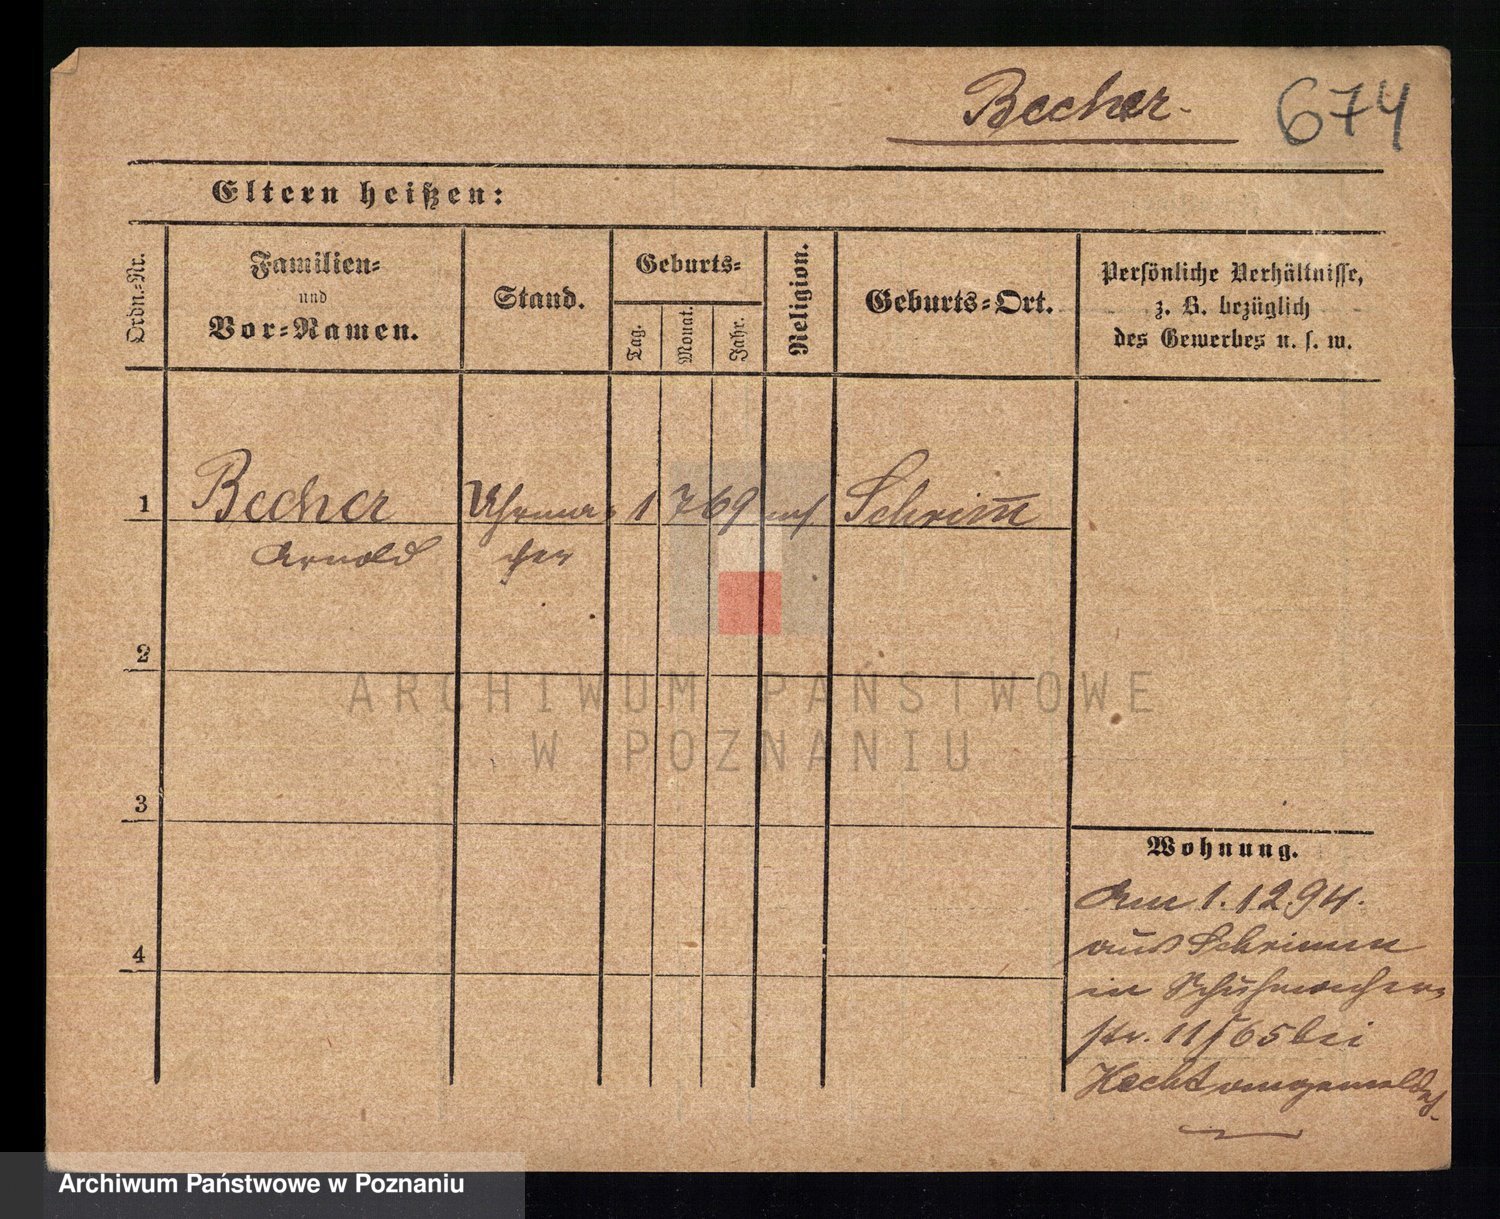 Becher.
674
Eltern heißen:
Ordn.-Nr.
Familien- und Vor-Namen.
Stand.
Geburts-
Tag.
Monat.
Jahr.
Religion.
Geburts-Ort.
Persönliche Verhältnisse,
z. B. bezüglich
des Gewerbes u. s. w.
1 Becher Uhrma- 1 7 69 mos Schrim̄
Arnold cher
2
3
4
Wohnung.
Am 1.12.94.
aus Schrimm
in Schuhmacher-
str. 11/65 bei
Hecht angemeldet.
ARCHIWUM PAŃSTWOWE
W POZNANIU
Archiwum Państwowe w Poznaniu